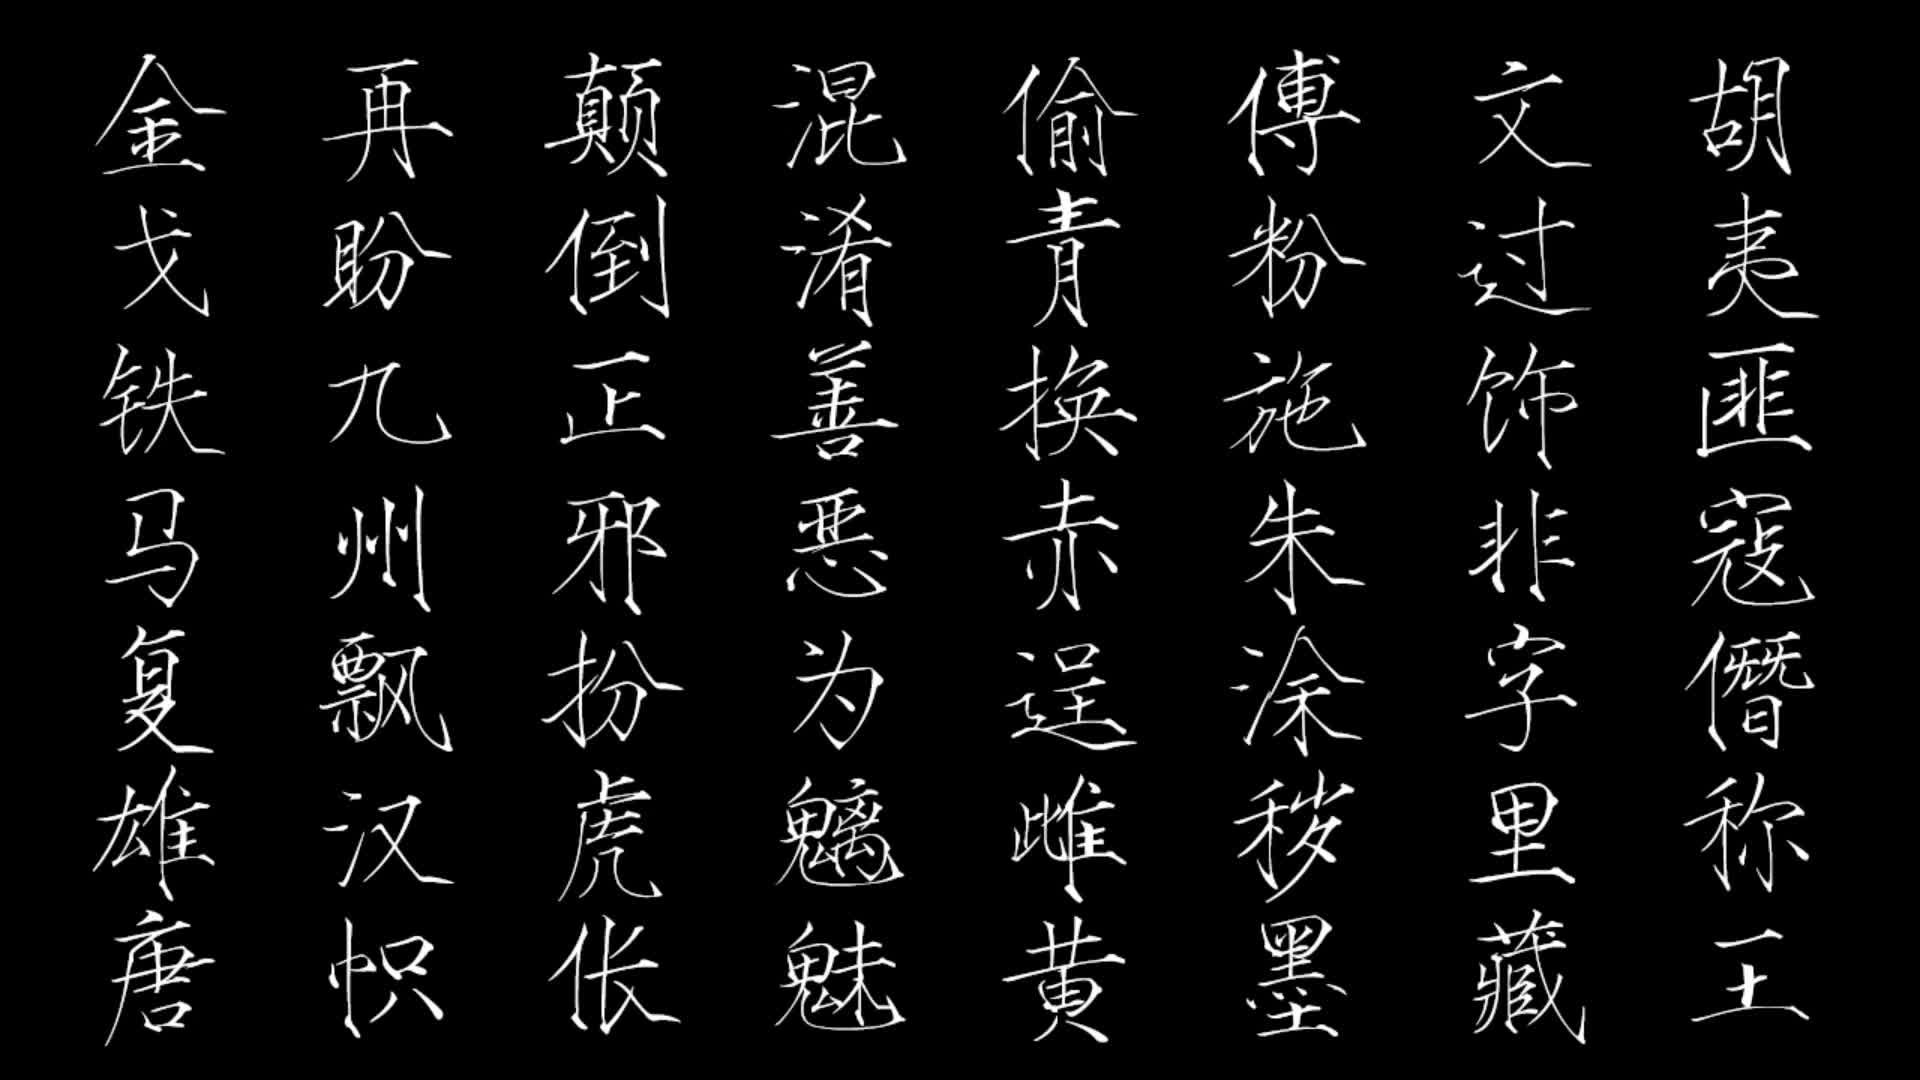 胡夷匪寇僭称王
文过饰非字里藏
傅粉施朱涂秽墨
偷青换赤逞雌黄
混淆善恶为魑魅
颠倒正邪扮虎伥
再盼九州飘汉帜
金戈铁马复雄唐